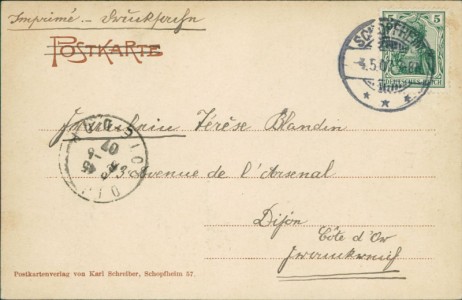 Imprimé – Drucksache
POSTKARTE
SCHOPFHEIM
5
DEUTSCHES REICH
Fräulein Térèse Blandin
3 avenue de l'Arsenal
Dijon
Côte d'Or
Frankreich
Postkartenverlag von Karl Schreiber, Schopfheim 57.